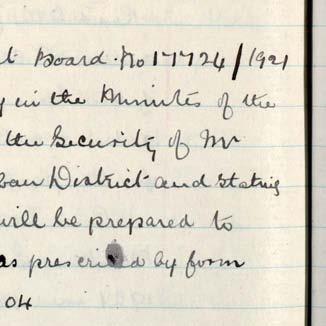 t Board. No 17724/1921
y in the Minutes of the
the Security of Mr
ban District and stating
will be prepared to
as prescribed by form
04